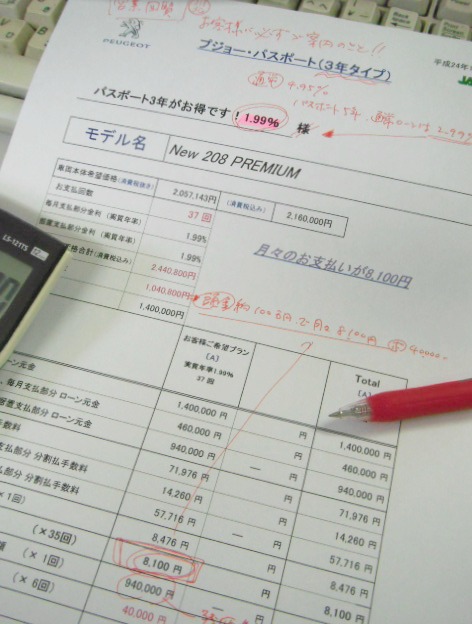 営業 回覧
お客様に必ずご案内のこと!!
PEUGEOT
プジョー・パスポート(3年タイプ)
平成24年
JA
通常 4.95%
パスポート5年、通常ローンは 2.99%
パスポート3年がお得です! 1.99% 様
モデル名 New 208 PREMIUM
車両本体希望価格(消費税抜き) 2,057,143円 (消費税込み) 2,160,000円
お支払回数 37 回
毎月支払部分金利(実質年率) 1.99%
据置支払部分金利(実質年率) 1.99%
合計(消費税込み) 2,440,800円
1,040,800円
1,400,000円
月々のお支払いが8,100円
頭金 約100万円、々月々 8,100円
お客様ご希望プラン Total
[A] [A]
実質年率1.99%
37 回
ローン元金 1,400,000 円 円 1,400,000 円
、毎月支払部分 ローン元金 460,000 円 円 460,000 円
据置支払部分 ローン元金 940,000 円 — 円 940,000 円
手数料 71,976 円 円 71,976 円
支払部分 分割払手数料 14,260 円 — 円 14,260 円
払部分 分割払手数料 57,716 円 円 57,716 円
×1回) 8,476 円 — 円 8,476 円
(×35回) 8,100 円 円 8,100 円
額 (× 1回) 940,000 円
(× 6回) 40,000 円
LS-121TS